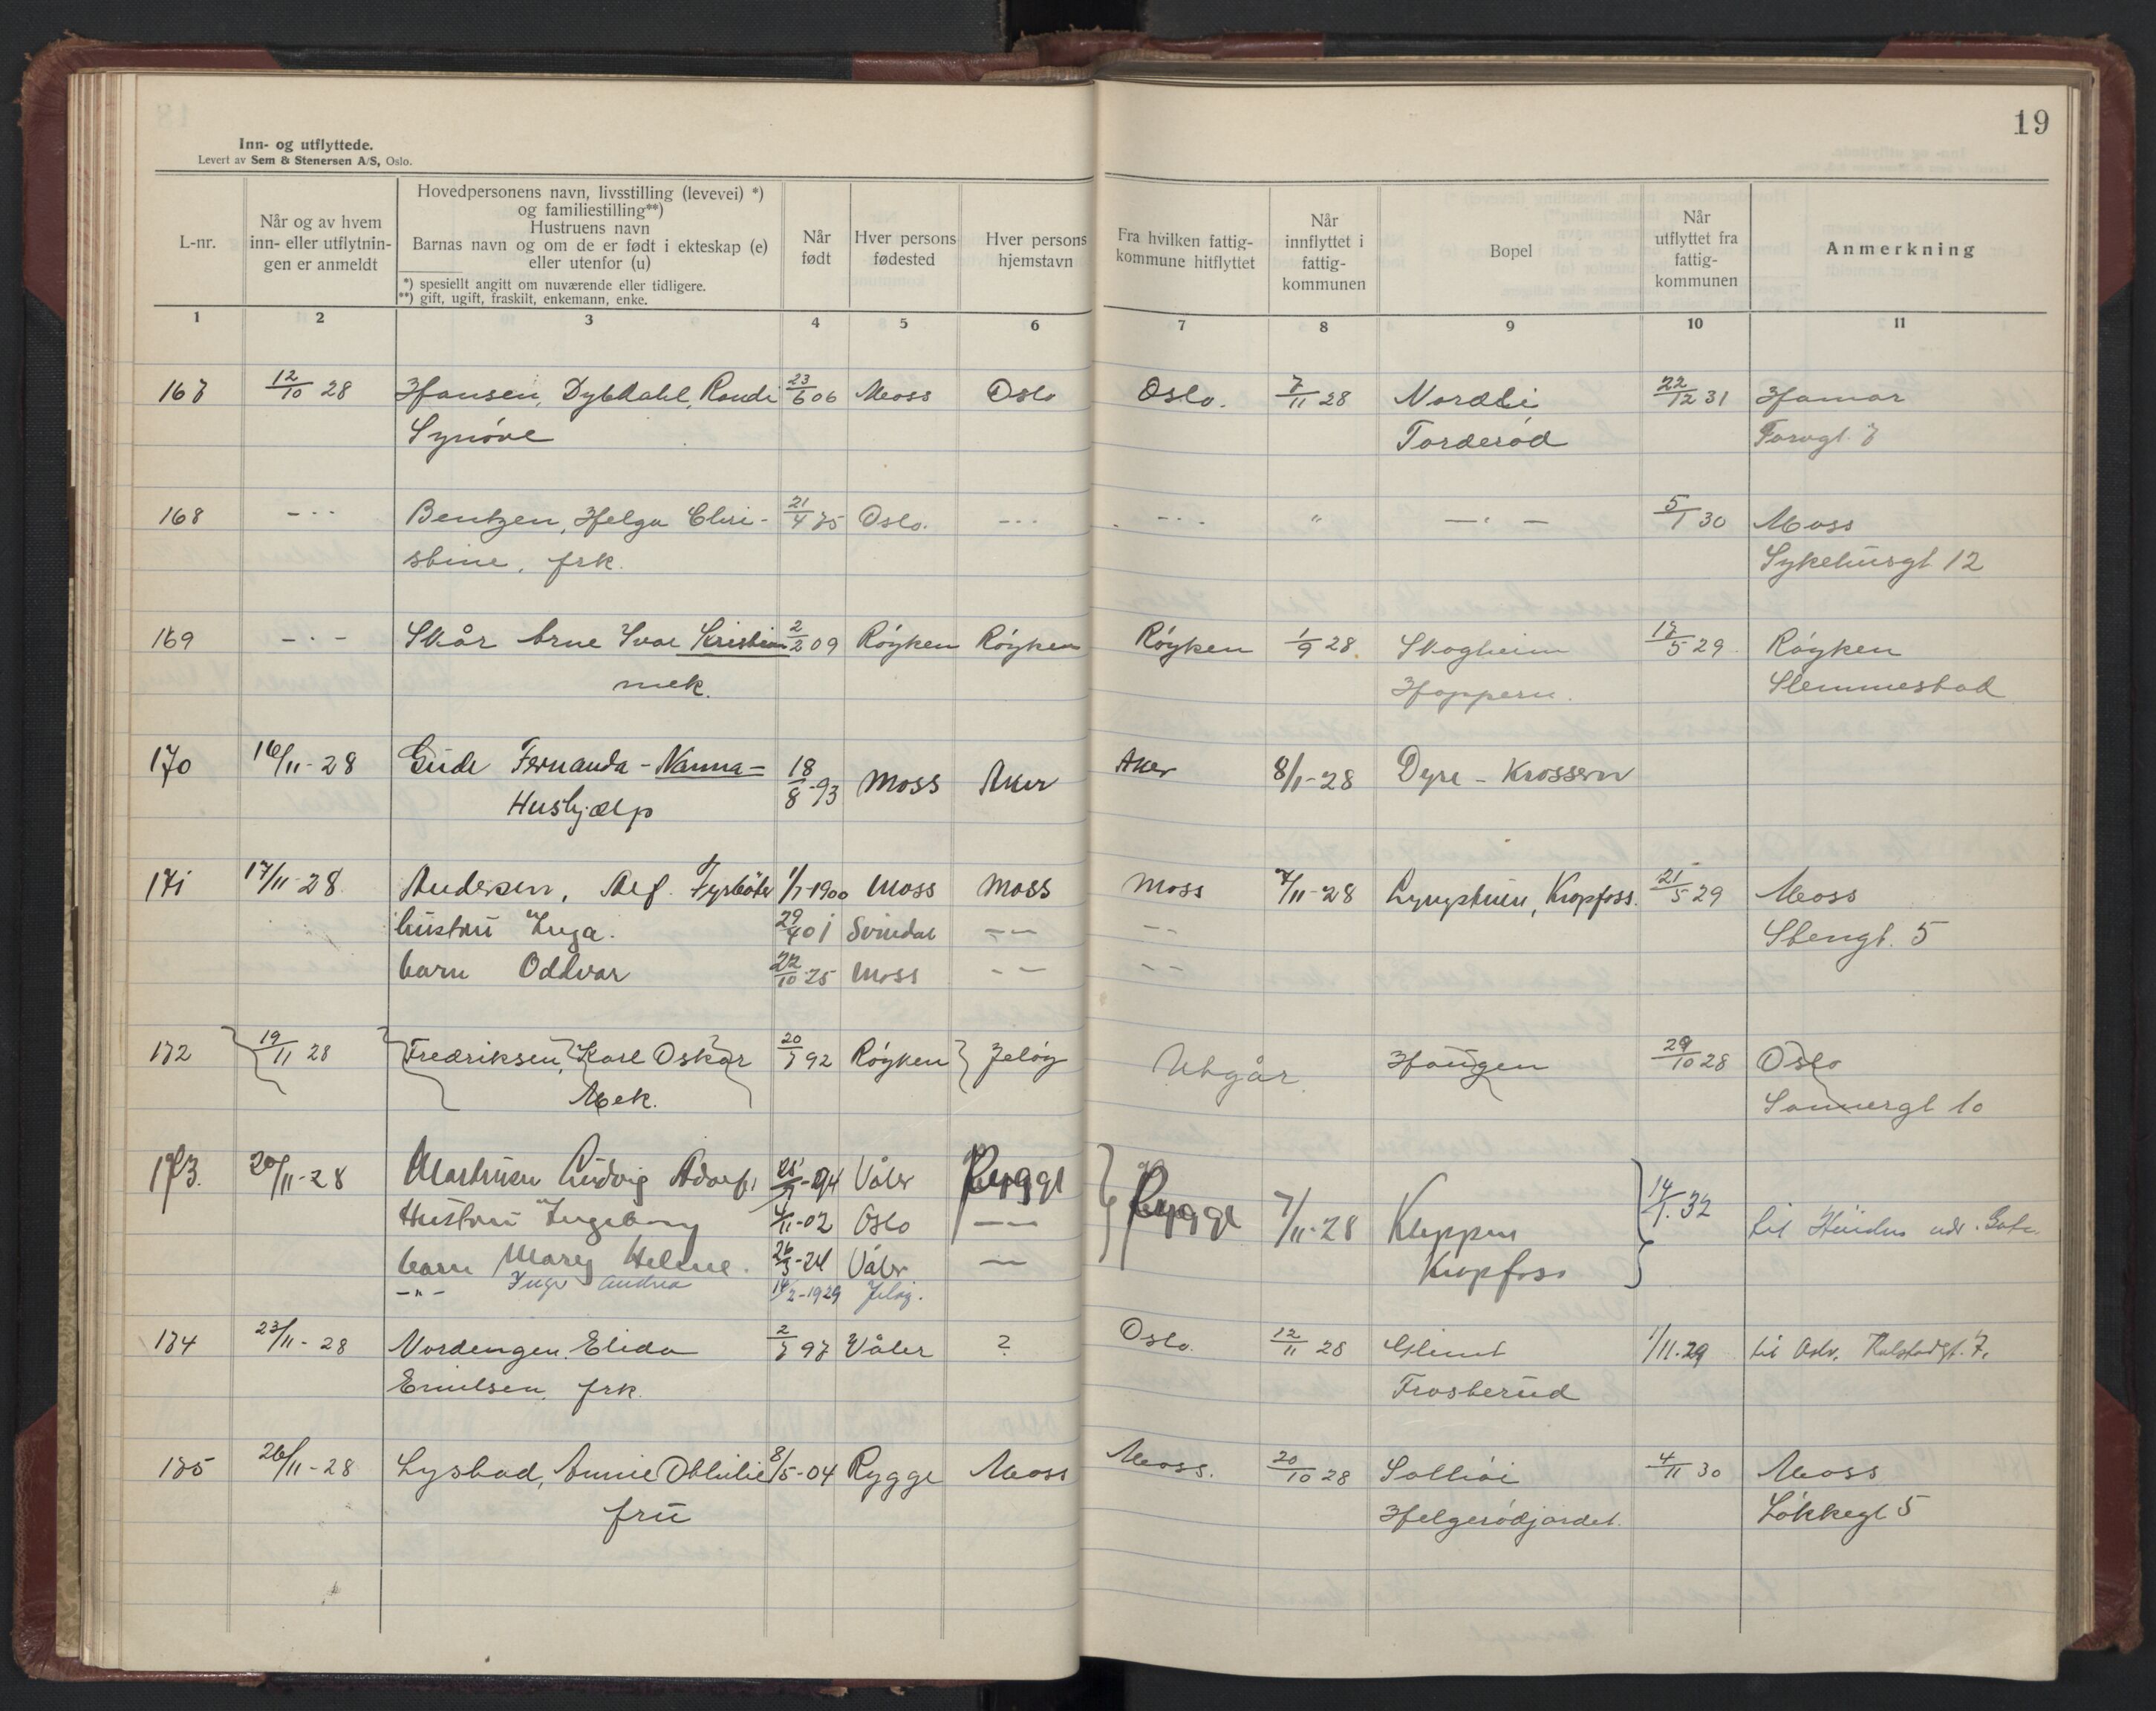 19
Inn- og utflyttede.
Levert av Sem & Stenersen A/S, Oslo.
L-nr.
Når og av hvem
inn- eller utflytnin-
gen er anmeldt
Hovedpersonens navn, livsstilling (levevei) *)
og familiestilling**)
Hustruens navn
Barnas navn og om de er født i ekteskap (e)
eller utenfor (u)
*) spesiellt angitt om nuværende eller tidligere.
**) gift, ugift, fraskilt, enkemann, enke.
Når
født
Hver persons
fødested
Hver persons
hjemstavn
Fra hvilken fattig-
kommune hitflyttet
Når
innflyttet i
fattig-
kommunen
Bopel
Når
utflyttet fra
fattig-
kommunen
Anmerkning
1 2 3 4 5 6 7 8 9 10 11
167 12/10 28 Hansen, Dybdahl, Randi 23/6 06 Moss Oslo Oslo. 7/11 28 Nordli 22/12 31 Hamar
Synöve Torderød Torvgt. 7
168 - · · Bentzen, Helga Chri- 21/4 75 Oslo. - · · - · · - " - · - 5/1 30 Moss
stine, frk. Sykehusgt 12
169 - · - Skår Arne Ivar Kristian 2/2 09 Røyken Røyken Røyken 1/9 28. Skogheim 17/5 29 Røyken
mek. Hoppern. Slemmestad
170 16/11-28 Gude Fernanda - Nanna - 18/8-93 Moss Aker Aker 8/1-28 Dyre - Krossern
Hushjælp
171 17/11-28. Andersen, Alf. Fyrbøter 1/1-1900 Moss Moss Moss 7/11-28 Lyngstuen, Kropfoss. 21/5 29 Moss
hustru Inga. 29/4 01 Svindal - - - - Stengt. 5
barn Oddvar 22/10 25 Moss - - - -
172 19/11 28 Fredriksen, Karl Oskar 20/7 92 Røyken Jeløy Utgår Haugen 29/10 28 Oslo
Mek. Sannergt 10
173. 20/11-28 Martinsen Ludvig Adolf, -94 Våler Rygge Rygge 7/11-28 Kleppen 14/1. 32 til
Hustru Ingeborg 4/11-02 Oslo - - Kropfoss
barn Mary Helene. 26/3-24 Våler -
- " - Inger Andrea 14/2-1929 Jeløy.
174 23/11-28 Nordengen. Elida 2/7 97 Våler ? Oslo. 12/11 28 Glimt 1/11-29 til Oslo. 7.
Emilsen, frk. Trosterud
175 26/11-28 Lysbad, Annie Othilie 8/5-04 Rygge Moss Moss. 20/10 28 Solhøi 4/11 30 Moss
frü Helgerødjordet. Løkkegt 5